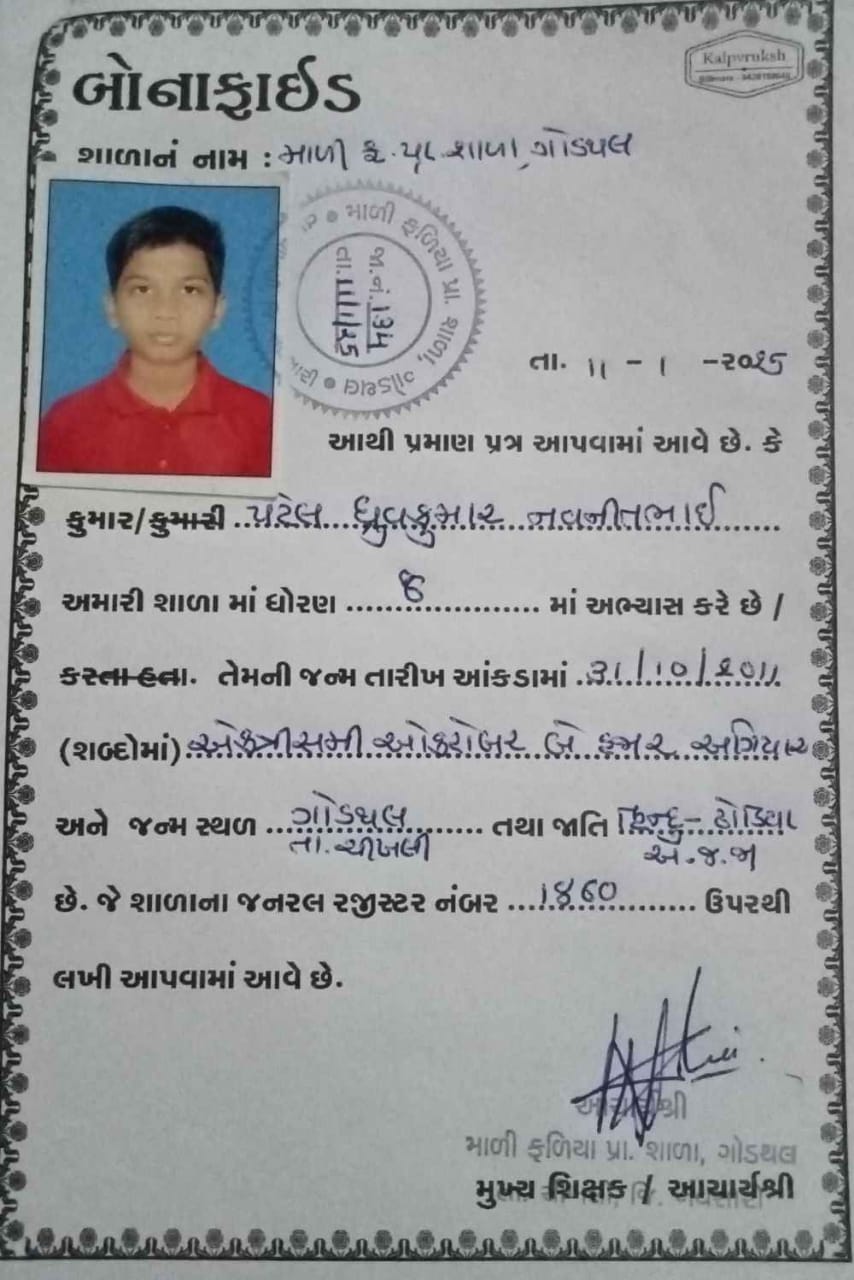 Kalpvruksh
બોનાફાઈડ
શાળાનું નામ : માળી ફ. પ્રા. શાળા, ગોડથલ
માળી ફળિયા પ્રા. શાળા, ગોડથલ
જા.નં. ૧૩૫
તા. ૧૧/૧/૨૫
તા. ૧૧ - ૧ - ૨૦૨૫
આથી પ્રમાણ પત્ર આપવામાં આવે છે. કે
કુમાર/કુમારી પટેલ ધ્રુવકુમાર નવનીતભાઈ
અમારી શાળા માં ધોરણ ૮ માં અભ્યાસ કરે છે /
કરતા હતા. તેમની જન્મ તારીખ આંકડામાં ૩૧/૧૦/૨૦૧૧
(શબ્દોમાં) એકત્રીસમી ઓક્ટોબર બે હજાર અગિયાર
અને જન્મ સ્થળ ગોડથલ તથા જાતિ હિન્દુ - ઢોડિયા
તા. ચીખલી અ.જ.જા
છે. જે શાળાના જનરલ રજીસ્ટર નંબર ૧૪૬૦ ઉપરથી
લખી આપવામાં આવે છે.
આચાર્યશ્રી
માળી ફળિયા પ્રા. શાળા, ગોડથલ
મુખ્ય શિક્ષક / આચાર્યશ્રી